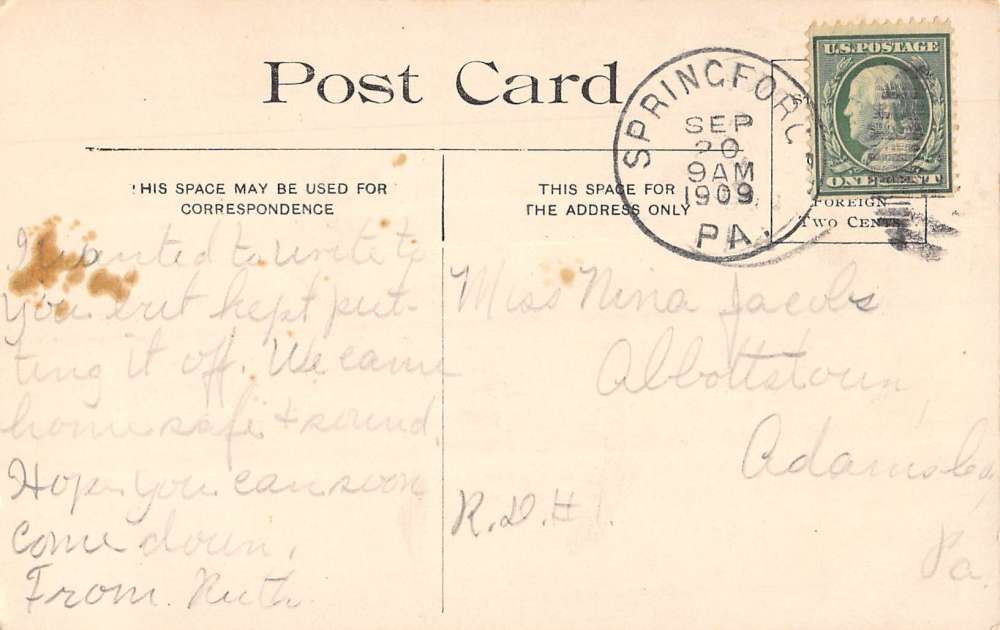 Post Card
SPRINGFORD
SEP
20
9AM
1909
PA.
U.S. POSTAGE
ONE CENT
FOREIGN
TWO CENTS
THIS SPACE MAY BE USED FOR
CORRESPONDENCE
THIS SPACE FOR
THE ADDRESS ONLY
I wanted to write to
you but kept put-
ting it off. We came
home safe & sound.
Hope you can soon
come down.
From Ruth
Miss Nina Jacobs
Abbottstown,
Adams Co,
R.D.#1.
Pa.